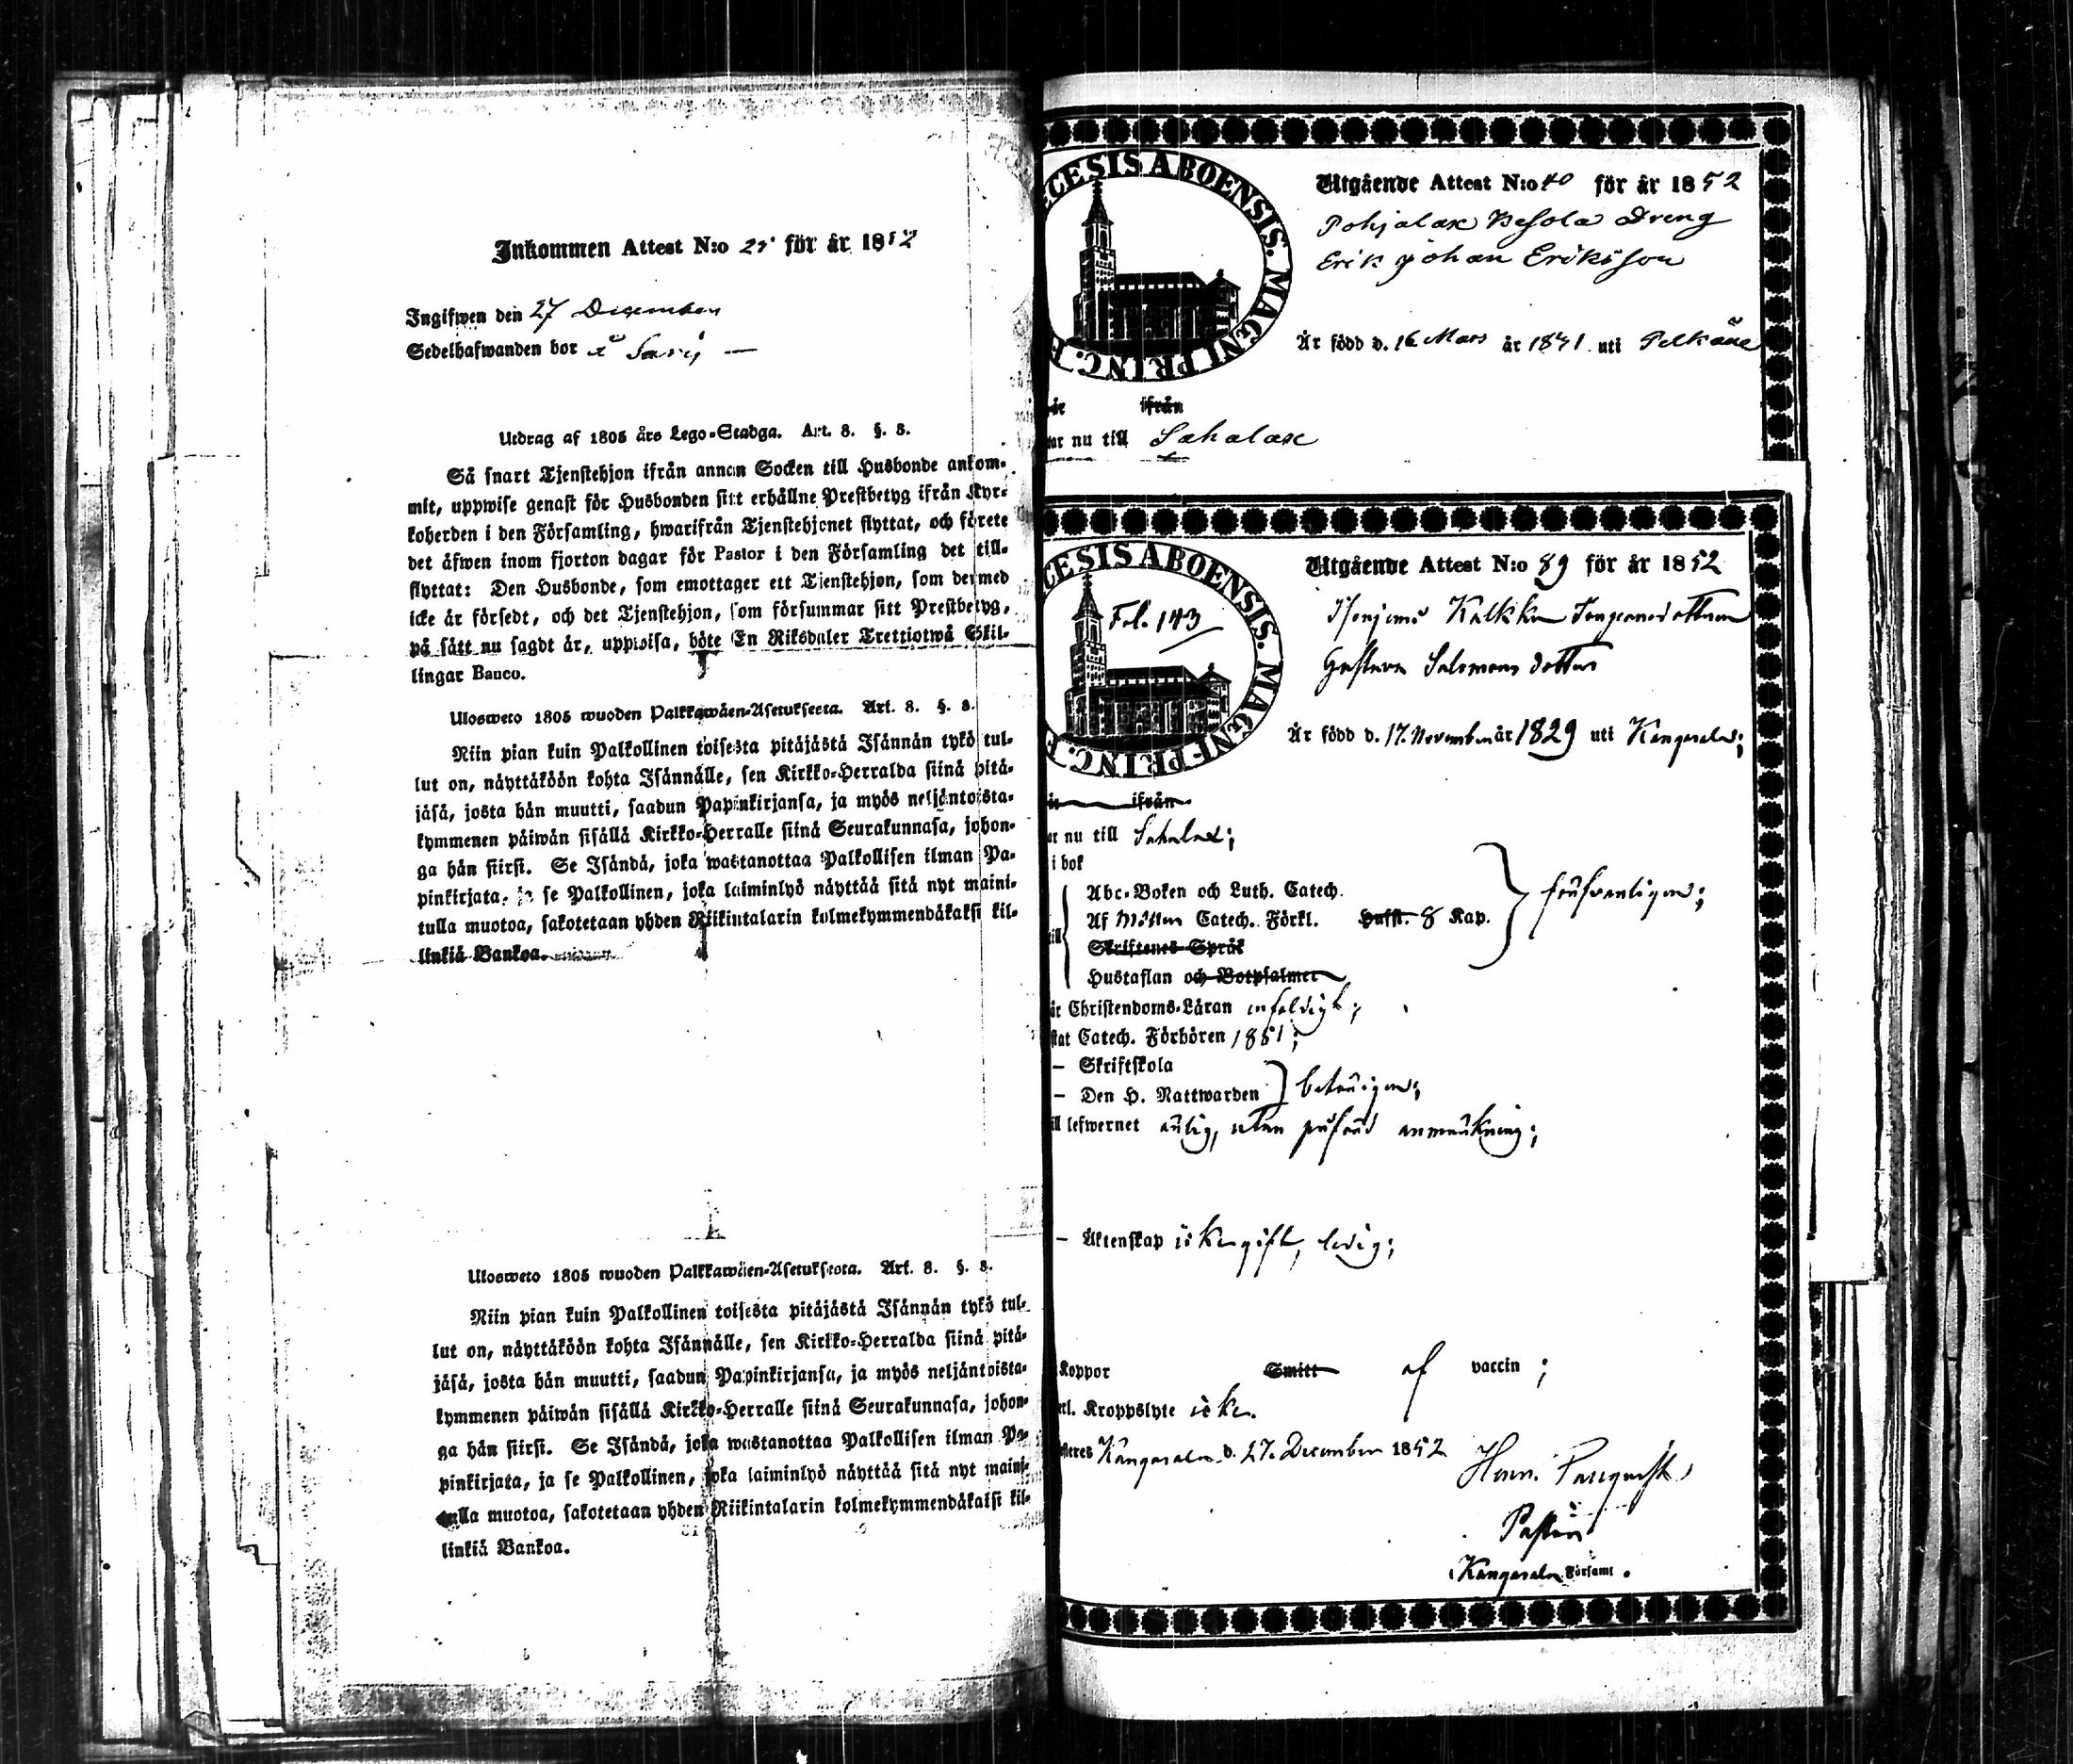 Inkommen Attest N:o för år 1852
Ingifwen den 27 December
Sedelhafwanden bor
Utdrag af 1805 års Lego-Stadga. Art. 8. §. 8.
Så snart Tjenstehjon ifrån annan Socken till Husbonde ankom-
mit, uppwise genast för Husbonden sitt erhållne Prestbetyg ifrån Kyr-
koherden i den Församling, hwarifrån Tjenstehjonet flyttat, och förete
det äfwen inom fjorton dagar för Pastor i den Församling det till-
flyttat: Den Husbonde, som emottager ett Tjenstehjon, som dermed
icke är försedt, och det Tjenstehjon, som försummar sitt Prestbetyg,
på sätt nu sagdt är, uppwisa, böte En Riksdaler Trettiotwå Skil-
lingar Banco.
Ulosweto 1805 wuoden Palkkawäen-Asetuksesta. Art. 8. §. 8.
Niin pian kuin Palkollinen toisesta pitäjästä Isännän tykö tul-
lut on, näyttäköön kohta Isännälle, sen Kirkko-Herralda siinä pitä-
jäsä, josta hän muutti, saadun Papinkirjansa, ja myös neljäntoista-
kymmenen päiwän sisällä Kirkko-Herralle siinä Seurakunnasa, johon-
ga hän siirsi. Se Isändä, joka wastanottaa Palkollisen ilman Pa-
pinkirjata, ja se Palkollinen, joka laiminlyö näyttää sitä nyt maini-
tulla muotoa, sakotetaan yhden Riikintalarin kolmekymmendäkaksi kil-
linkiä Bankoa.
Ulosweto 1805 wuoden Palkkawäen-Asetuksesta. Art. 8. §. 8.
Niin pian kuin Palkollinen toisesta pitäjästä Isännän tykö tul-
lut on, näyttäköön kohta Isännälle, sen Kirkko-Herralda siinä pitä-
jäsä, josta hän muutti, saadun Papinkirjansa, ja myös neljäntoista-
kymmenen päiwän sisällä Kirkko-Herralle siinä Seurakunnasa, johon-
ga hän siirsi. Se Isändä, joka wastanottaa Palkollisen ilman Pa-
pinkirjata, ja se Palkollinen, joka laiminlyö näyttää sitä nyt maini-
tulla muotoa, sakotetaan yhden Riikintalarin kolmekymmendäkaksi kil-
linkiä Bankoa.
CESIS ABOENSIS. MAGNI PRINC. F
Utgående Attest N:o 40 för år 1852
Pohjalax Dreng
Erik Johan Eriksson
Är född d. 16 Mars år uti Pelkäne
är ifrån
ar nu till Sahalax
CESIS ABOENSIS. MAGNI PRINC. F
Fol. 143
Utgående Attest N:o 89 för år 1852
Gustava Salomons dotter
Är född d. 17. November år 1829 uti Kangasala;
är ifrån
ar nu till Sahalax;
i bok
Abc-Boken och Luth. Catech.
Af Catech. Förkl. Hufst. 8 Kap.
Skriftenes Språk
Hustaflan och Botpsalmer
försvarligen;
är Christendoms-Läran enfaldigt;
stat Catech. Förhören 1851;
– Skriftskola
– Den H. Nattwarden
behörigen;
ill lefwernet ärlig, utan påförd anmärkning;
– Äktenskap icke gift, ledig;
Koppor Smitt af vaccin;
rl. Kroppslyte icke.
steres Kangasala d. 27. December 1852
Pastor
Kangasala Församl.